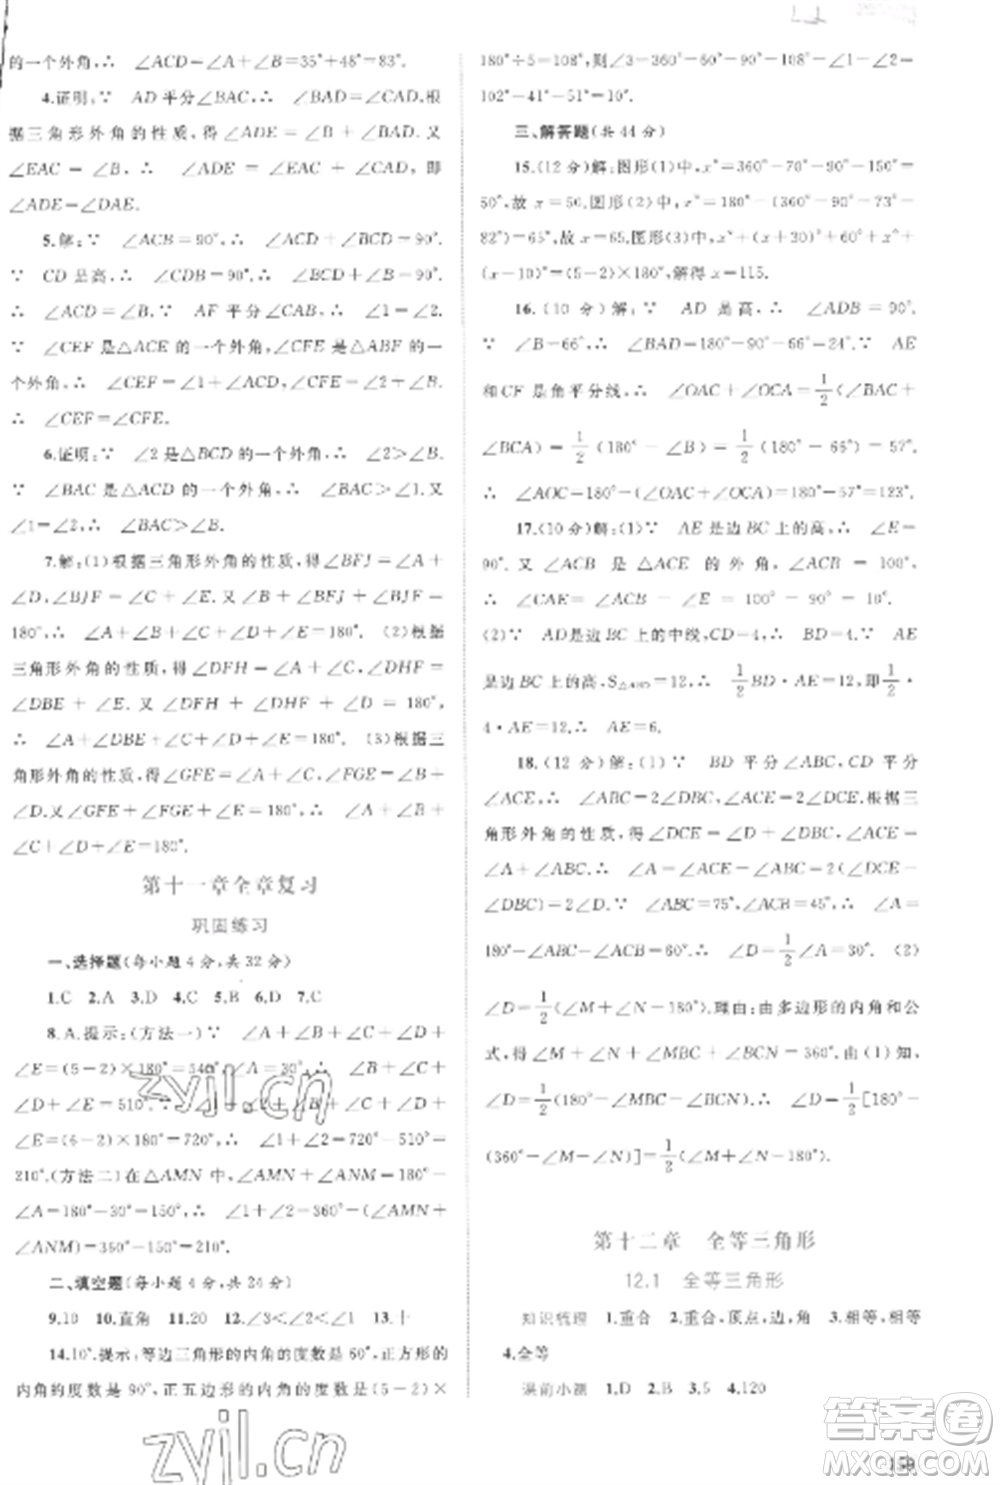 的一个外角,∴ ∠ACD=∠A+∠B=35°+48°=83°.
4.证明:∵ AD平分∠BAC,∴ ∠BAD=∠CAD.
根据三角形外角的性质,得∠ADE=∠B+∠BAD.又
∠EAC=∠B,∴ ∠ADE=∠EAC+∠CAD,∴
∠ADE=∠DAE.
5.解:∵ ∠ACB=90°,∴ ∠B+∠BAC=90°.
∵ CD是高,∴ ∠CDB=90°.∴ ∠B+∠BCD=90°.
∴ ∠ACD=∠B.∵ AF平分∠CAB,∴ ∠1=∠2.
∵ ∠CEF是△ACE的一个外角,∠CFE是△ABF的
一个外角,∠CEF=∠1+∠ACD,∠CFE=∠2+∠B,
∴ ∠CEF=∠CFE.
6.证明:∵ ∠2是△BCD的一个外角,∴ ∠2>∠B.
∵ ∠BAC是△ACD的一个外角,∴ ∠BAC>∠1.又
∠1=∠2,∴ ∠BAC>∠B.
7.解:(1)根据三角形外角的性质,得∠BFJ=∠A+
∠D,∠BJF=∠C+∠E.又∠B+∠BFJ+∠BJF=
180°,∴ ∠A+∠B+∠C+∠D+∠E=180°.(2)根据
三角形外角的性质,得∠DFH=∠A+∠C,∠DHF=
∠DBE+∠E.又∠DFH+∠DHF+∠D=180°,
∴ ∠A+∠DBE+∠C+∠D+∠E=180°.(3)根据三
角形外角的性质,得∠GFE=∠A+∠C,∠FGE=∠B+
∠D.又∠GFE+∠FGE+∠E=180°,∴ ∠A+∠B+
∠C+∠D+∠E=180°.
第十一章全章复习
巩固练习
一、选择题(每小题4分,共32分)
1.C 2.A 3.D 4.C 5.B 6.D 7.C
8.A.提示:(方法一)∵ ∠A+∠B+∠C+∠D+
∠E=(5-2)×180°=540°,∠A=30°,∴ ∠B+∠C+
∠D+∠E=510°.∵ ∠1+∠2+∠B+∠C+∠D+
∠E=(6-2)×180°=720°,∴ ∠1+∠2=720°-510°=
210°.(方法二)在△AMN中,∠AMN+∠ANM=180°-
∠A=180°-30°=150°,∴ ∠1+∠2=360°-(∠AMN+
∠ANM)=360°-150°=210°.
二、填空题(每小题4分,共24分)
9.10 10.直角 11.20 12.∠3<∠2<∠1 13.十
14.10°.提示:等边三角形的内角的度数是60°,正方形的
内角的度数是90°,正五边形的内角的度数是(5-2)×
180°÷5=108°,则∠3=360°-60°-90°-108°-∠1-∠2=
102°-41°-51°=10°.
三、解答题(共44分)
15.(12分)解:图形(1)中,x°=360°-70°-90°-150°=
50°,故x=50.图形(2)中,x°=180°-(360°-90°-73°-
82°)=65°,故x=65.图形(3)中,x°+(x+30)°+60°+x°+
(x-10)°=(5-2)×180°,解得x=115.
16.(10分)解:∵ AD是高,∴ ∠ADB=90°.
∵ ∠B=66°,∴ ∠BAD=180°-90°-66°=24°.∵ AE
和CF是角平分线,∴ ∠OAC+∠OCA=1/2(∠BAC+
∠BCA)=1/2(180°-∠B)=1/2(180°-66°)=57°.
∴ ∠AOC=180°-(∠OAC+∠OCA)=180°-57°=123°.
17.(10分)解:(1)∵ AE是边BC上的高,∴ ∠E=
90°.又∠ACB是△ACE的一个外角,∠ACB=100°,
∴ ∠CAE=∠ACB-∠E=100°-90°=10°.
(2)∵ AD是边BC上的中线,CD=4,∴ BD=4.∵ AE
是边BC上的高,S△ABD=12,∴ 1/2BD·AE=12,即1/2·
4·AE=12,∴ AE=6.
18.(12分)解:(1)∵ BD平分∠ABC,CD平分
∠ACE,∴ ∠ABC=2∠DBC,∠ACE=2∠DCE.根据三
角形外角的性质,得∠DCE=∠D+∠DBC,∠ACE=
∠A+∠ABC.∴ ∠A+∠ABC=2∠DCE=2(∠D+
∠DBC).∴ ∠A=2∠D.∵ ∠ABC=75°,∠ACB=45°,∴ ∠A=
180°-∠ABC-∠ACB=60°.∴ ∠D=1/2∠A=30°.(2)
∠D=1/2(∠M+∠N-180°).理由:由多边形的内角和公
式,得∠M+∠N+∠MBC+∠BCN=360°.由(1)知,
∠D=1/2(180°-∠MBC-∠BCN),∴ ∠D=1/2[180°-
(360°-∠M-∠N)]=1/2(∠M+∠N-180°).
第十二章 全等三角形
12.1 全等三角形
知识梳理 1.重合 2.重合,顶点,边,角 3.相等,相等
4.全等
课前小测 1.D 2.B 3.5 4.120
zyjl.cn
zyjl.cn
答案卷
MXQE.COM